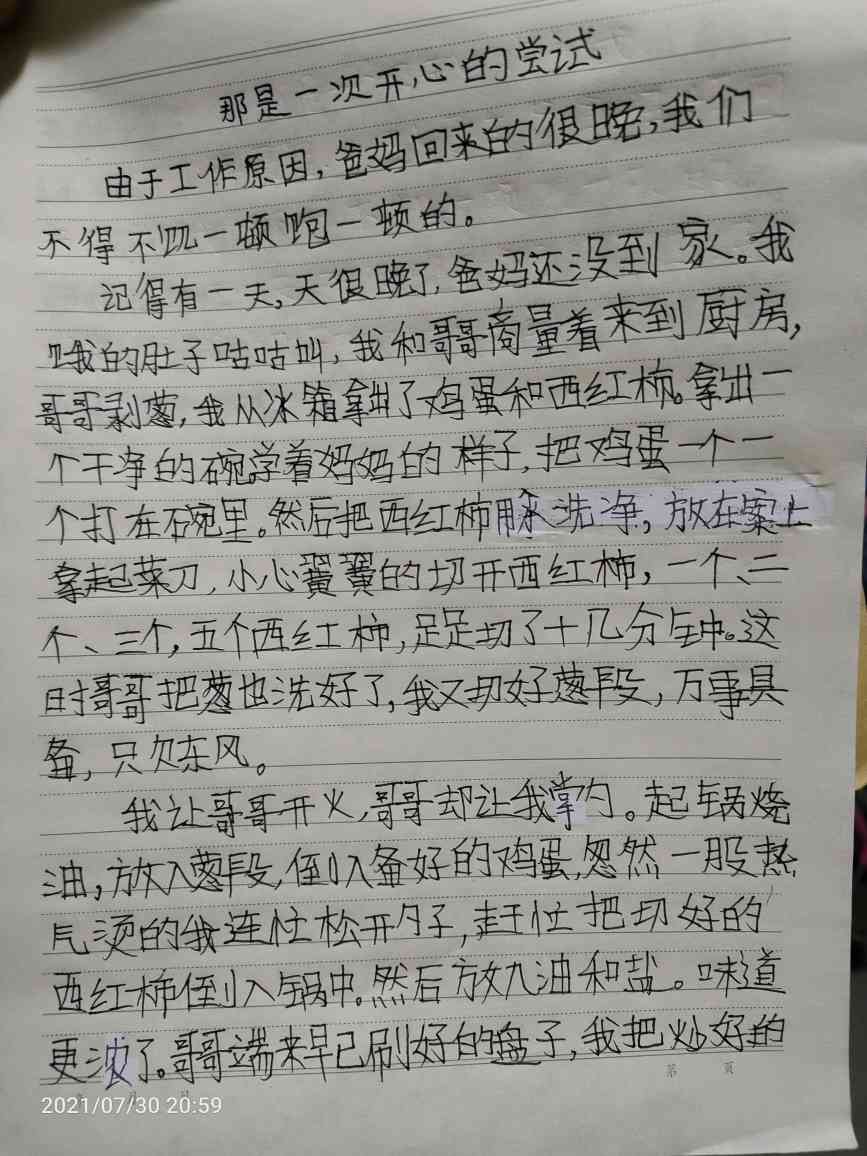 那是一次开心的尝试
由于工作原因,爸妈回来的很晚,我们
不得不饥一顿饱一顿的。
记得有一天,天很晚了,爸妈还没到家。我
饿的肚子咕咕叫,我和哥哥商量着来到厨房,
哥哥剥葱,我从冰箱拿出了鸡蛋和西红柿。拿出一
个干净的碗学着妈妈的样子,把鸡蛋一个一
个打在碗里。然后把西红柿用水洗净,放在案上
拿起菜刀,小心翼翼的切开西红柿,一个、二
个、三个,五个西红柿,足足切了十几分钟。这
时哥哥把葱也洗好了,我又切好葱段,万事具
备,只欠东风。
我让哥哥开火,哥哥却让我掌勺。起锅烧
油,放入葱段,倒入备好的鸡蛋,忽然一股热
气烫的我连忙松开勺子,赶忙把切好的
西红柿倒入锅中。然后放九油和盐。味道
更浓了。哥哥端来早已刷好的盘子,我把炒好的
第 页
2021/07/30 20:59